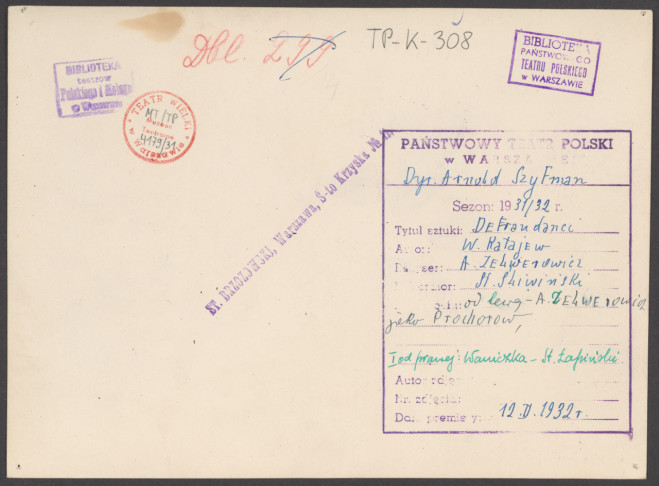 Dbl. 299
TP-K-308
BIBLIOTEKA
PAŃSTWOWEGO
TEATRU POLSKIEGO
w WARSZAWIE
BIBLIOTEKA
teatrów
Polskiego i Małego
w Warszawie
* TEATR WIELKI *
w Warszawie
MT/TP
Muzeum
Teatralne
4179/31
ST. BRZOZOWSKI, Warszawa, S-to Krzyska №
PAŃSTWOWY TEATR POLSKI
w WARSZAWIE
Dyr. Arnold Szyfman
Sezon: 1931/32 r.
Tytuł sztuki: Defraudanci
Autor: W. Katajew
A. Zelwerowicz
St. Śliwiński
od lewej - A. Zelwerowicz
jako Prochorow,
I od prawej: Waniczka - St. Łapiński.
Autor zdjęć
Nr. zdjęcia:
Data premiery: 12.II.1932 r.